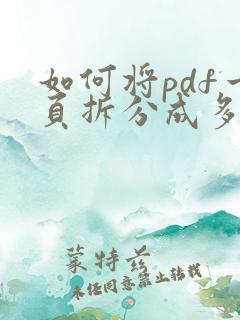 如何将pdf一
页拆分成多
蒙特兹
未经同意禁止转载